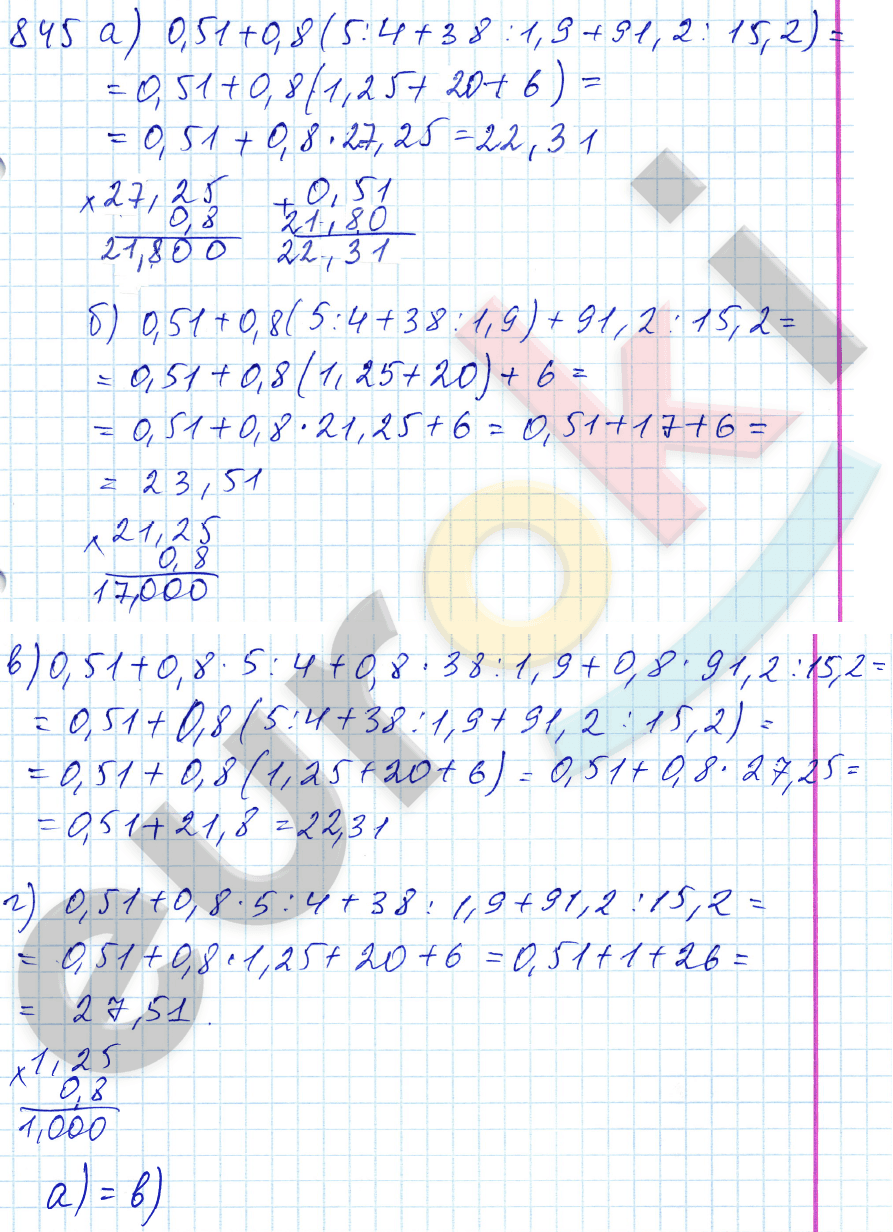 845 а) 0,51+0,8(5:4+38:1,9+91,2:15,2)=
=0,51+0,8(1,25+20+6)=
=0,51+0,8·27,25=22,31
×27,25 +0,51
0,8 21,80
21,800 22,31
б) 0,51+0,8(5:4+38:1,9)+91,2:15,2=
=0,51+0,8(1,25+20)+6=
=0,51+0,8·21,25+6=0,51+17+6=
=23,51
×21,25
0,8
17,000
в) 0,51+0,8·5:4+0,8·38:1,9+0,8·91,2:15,2=
=0,51+0,8(5:4+38:1,9+91,2:15,2)=
=0,51+0,8(1,25+20+6)=0,51+0,8·27,25=
=0,51+21,8=22,31
г) 0,51+0,8·5:4+38:1,9+91,2:15,2=
=0,51+0,8·1,25+20+6=0,51+1+26=
=27,51.
×1,25
0,8
1,000
а)=в)
euroki